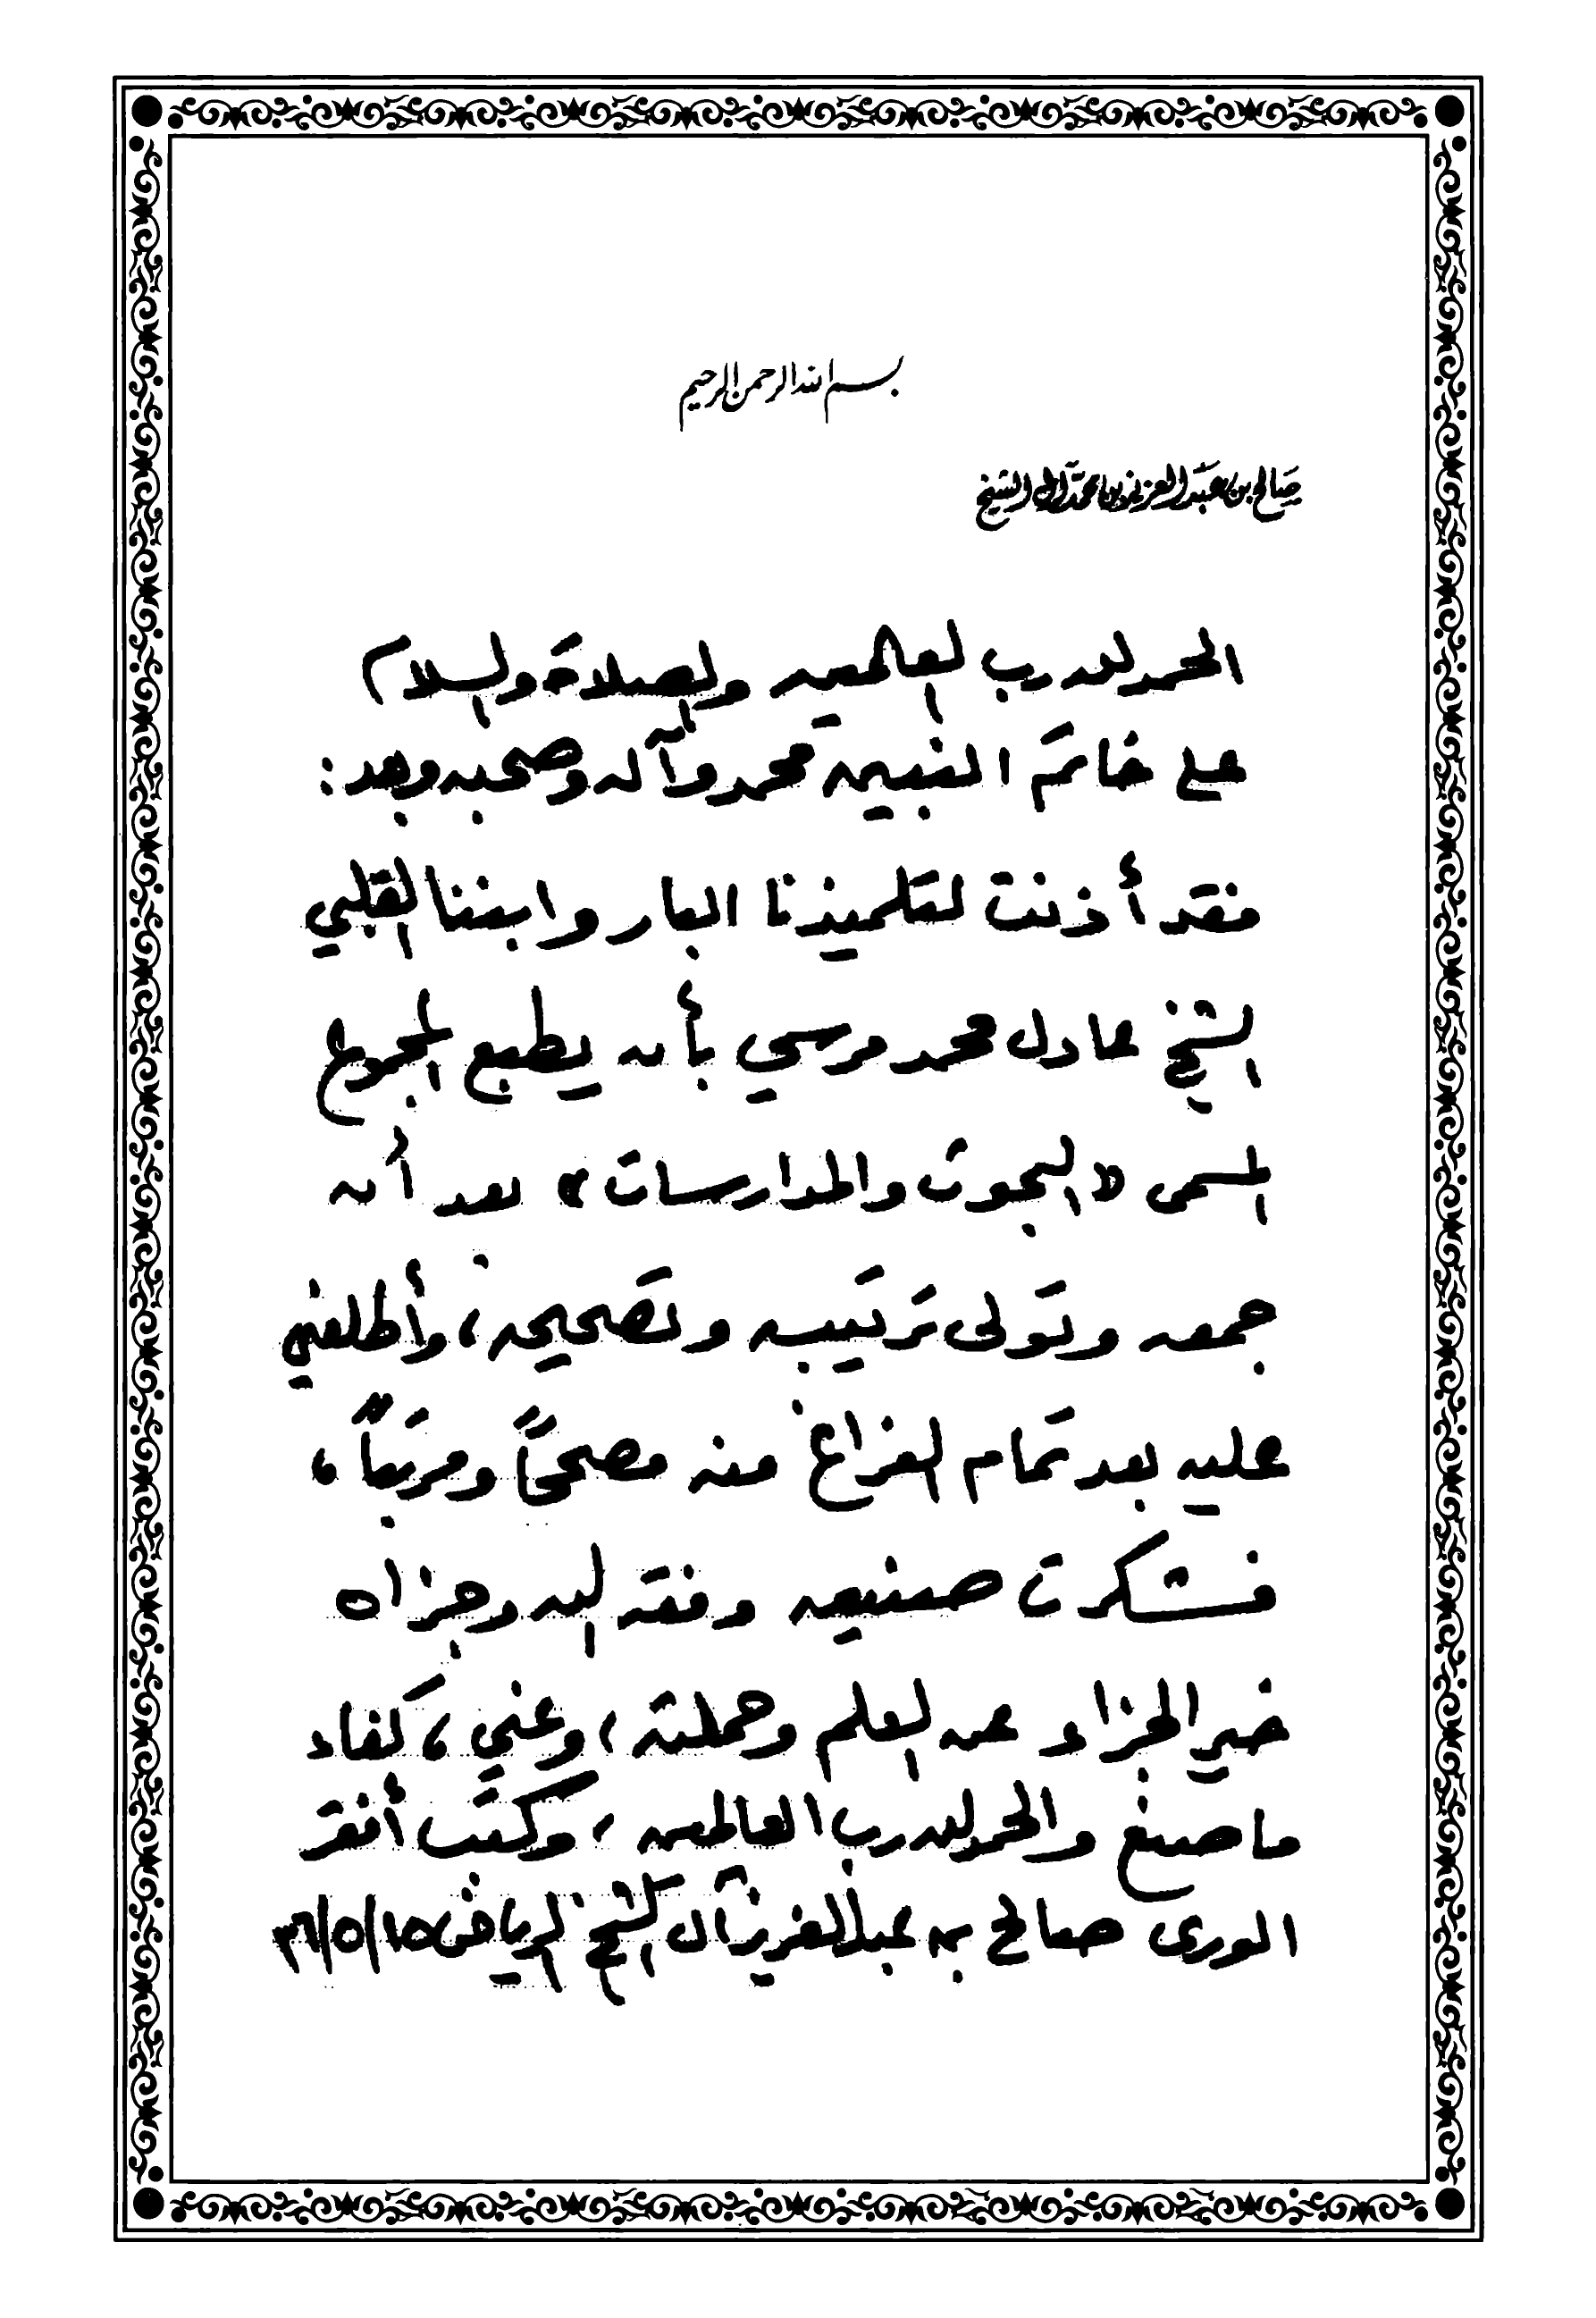 بسم الله الرحمن الرحيم
صالح بن عبد العزيز بن محمد آل الشيخ
الحمد لله رب العالمين والصلاة والسلام
على خاتم النبيين محمد وآله وصحبه وبعد:
فقد أذنت لتلميذنا البار وابننا القلبي
الشيخ عادل محمد مرسي بأن يطبع المجموع
المسمى «البحوث والمدارسات» بعد أن
جمعه وتولى ترتيبه وتصحيحه، وأطلعني
عليه بعد تمام الفراغ منه مصححاً ومرتباً،
فشكرت صنيعه وفقه الله وجزاه
خير الجزاء عن العلم وحملته، وعني، كفاء
ما صنع والحمد لله رب العالمين، وكتب أفقر
الورى صالح بن عبدالعزيز آل الشيخ الرياض ١٥/٥/٣٦